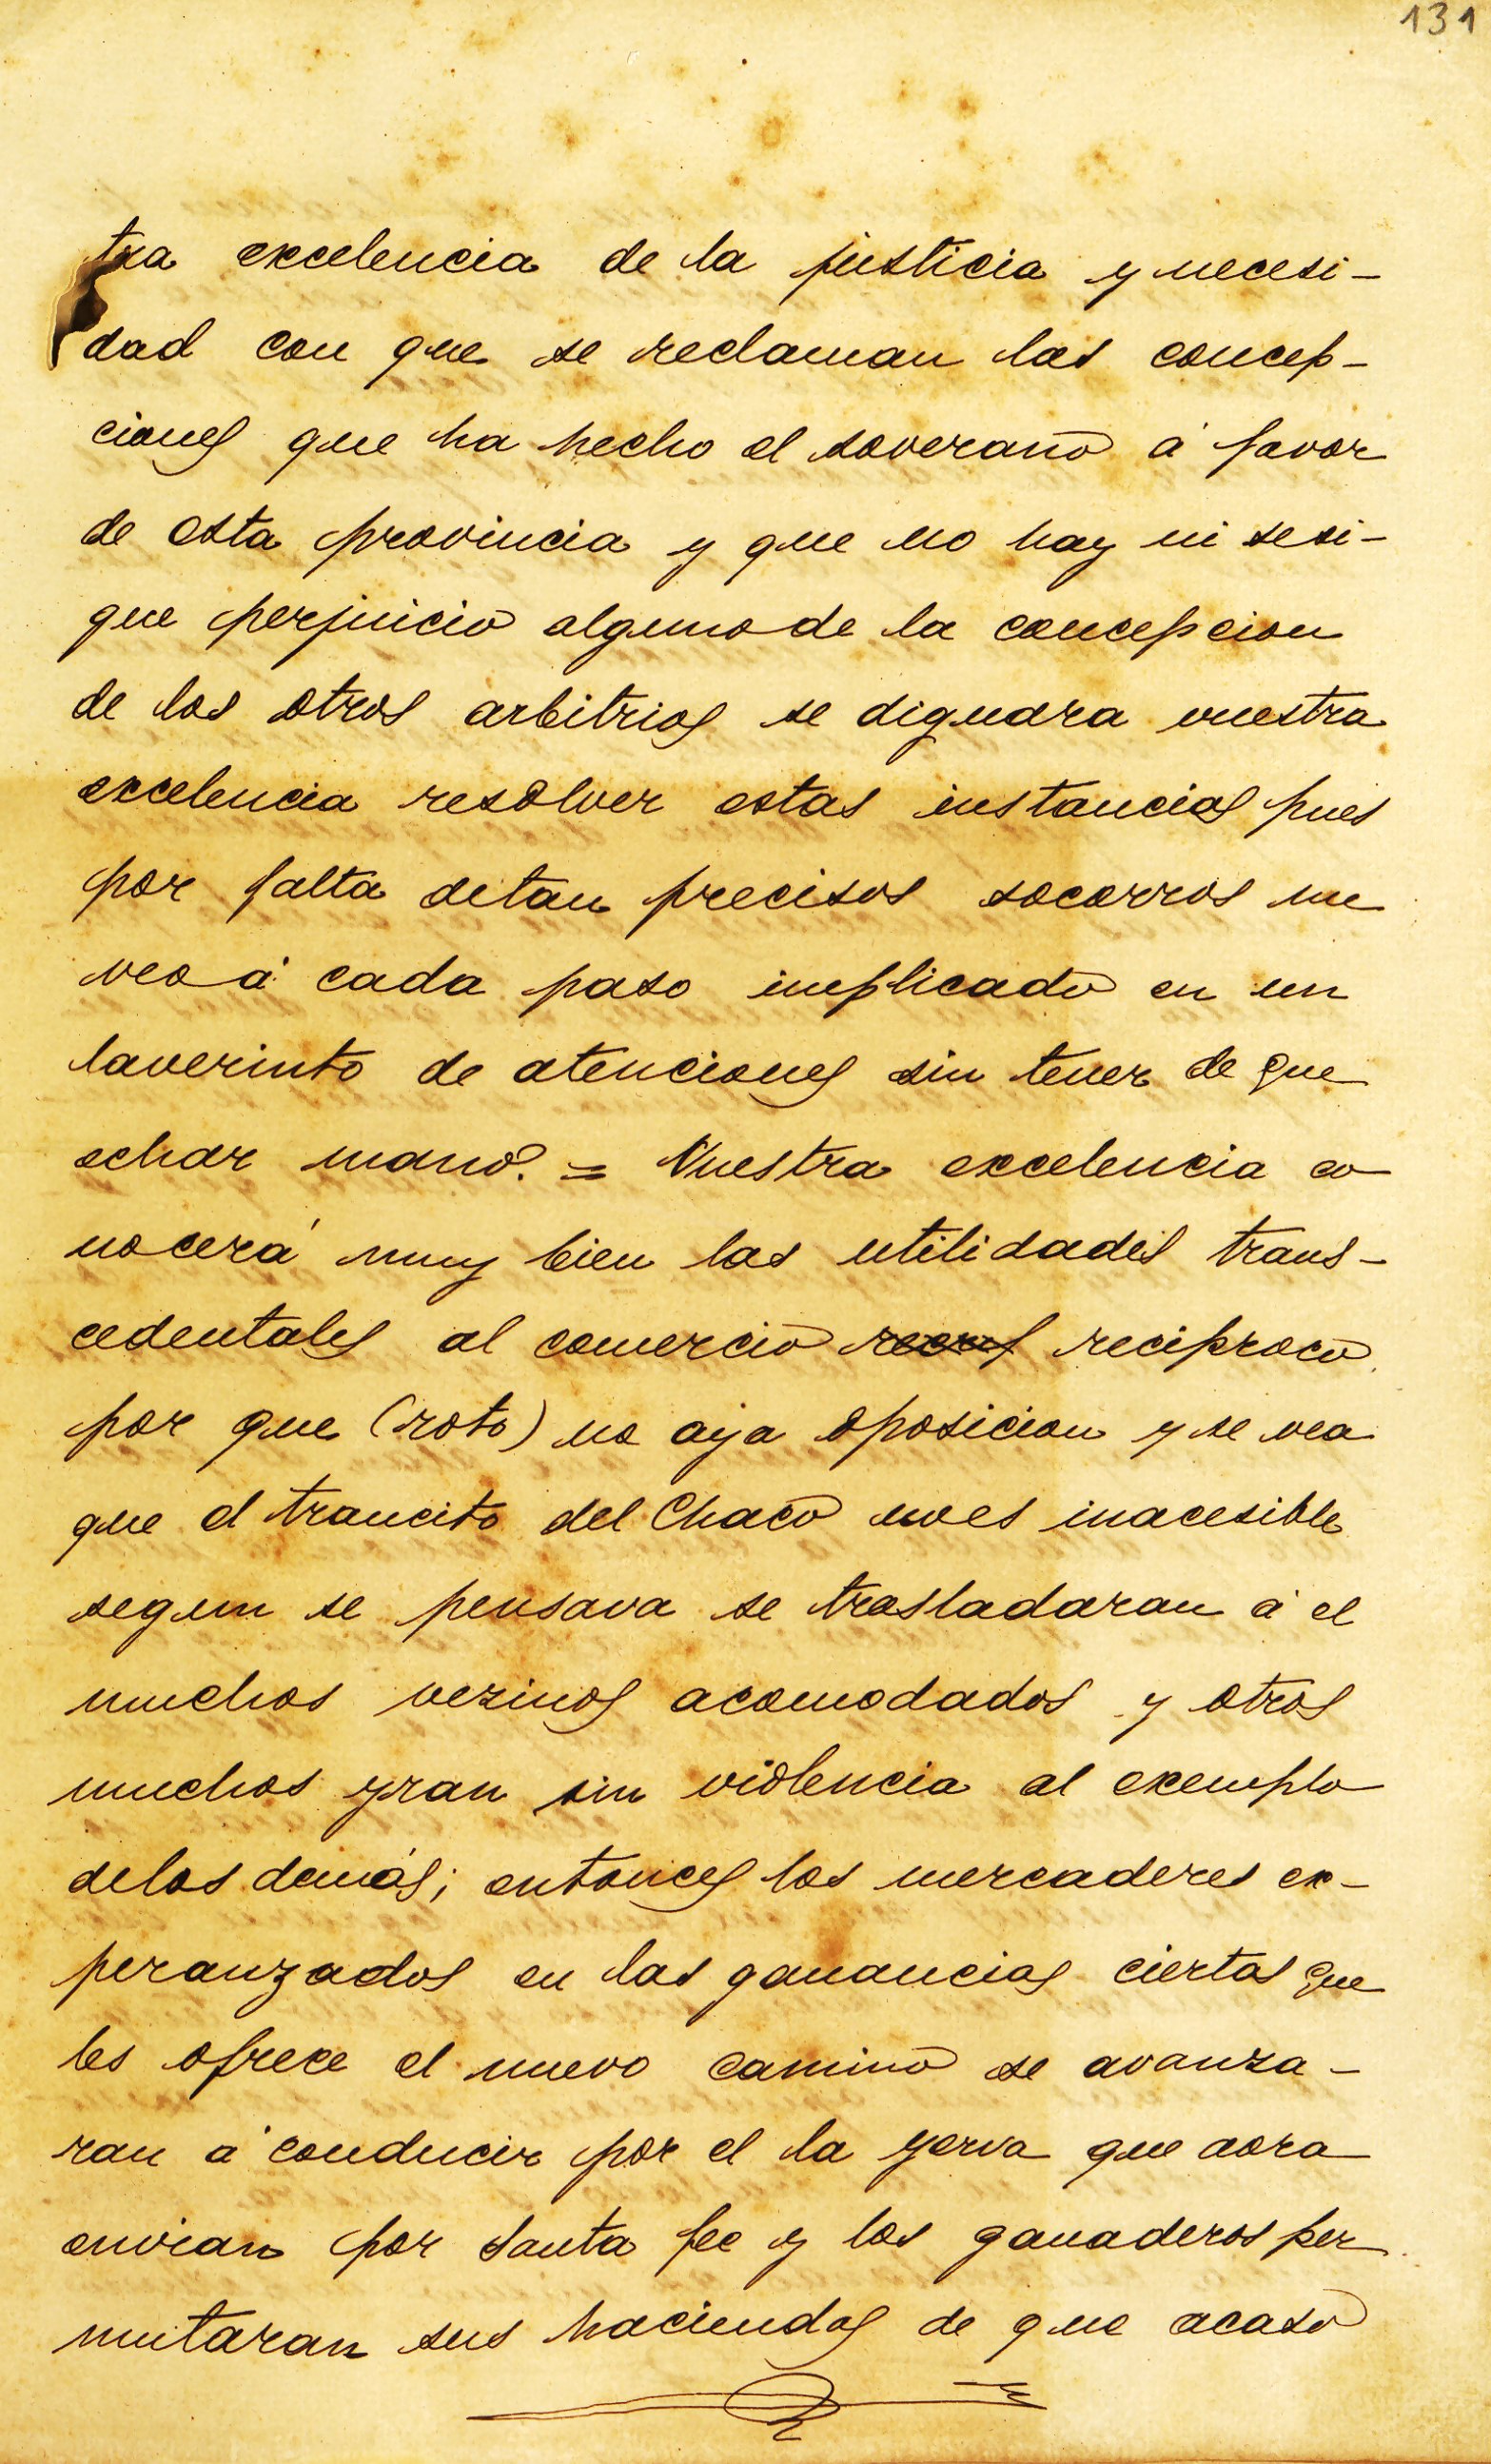 131
tra excelencia de la justicia y necesi-
dad con que se reclaman las concep-
ciones que ha hecho el soverano á favor
de esta provincia y que no hay ni se si-
gue perjuicio alguno de la concepcion
de los otros arbitrios se diguara vuestra
excelencia resolver estas instancias pues
por falta detan precisos socorros me
veo á cada paso implicado en un
laverinto de atenciones sin tener de que
echar mano. = Vuestra excelencia co
nocerá muy bien las utilidades trans-
cedentales al comercio reciproco
por que (roto) no aya oposicion y se vea
que el trancito del Chaco no es inacesible
segun se pensava se trasladaran á el
muchos vezinos acomodados y otros
muchos yran sin violencia al exemplo
delos demás; entonces los mercaderes ex-
peranzados en las ganancias ciertas que
les ofrece el nuevo camino se avanza-
ran á conducir por el la yerva que aora
envian por Santa fee y los ganaderos per
mutaran sus haciendas de que acaso